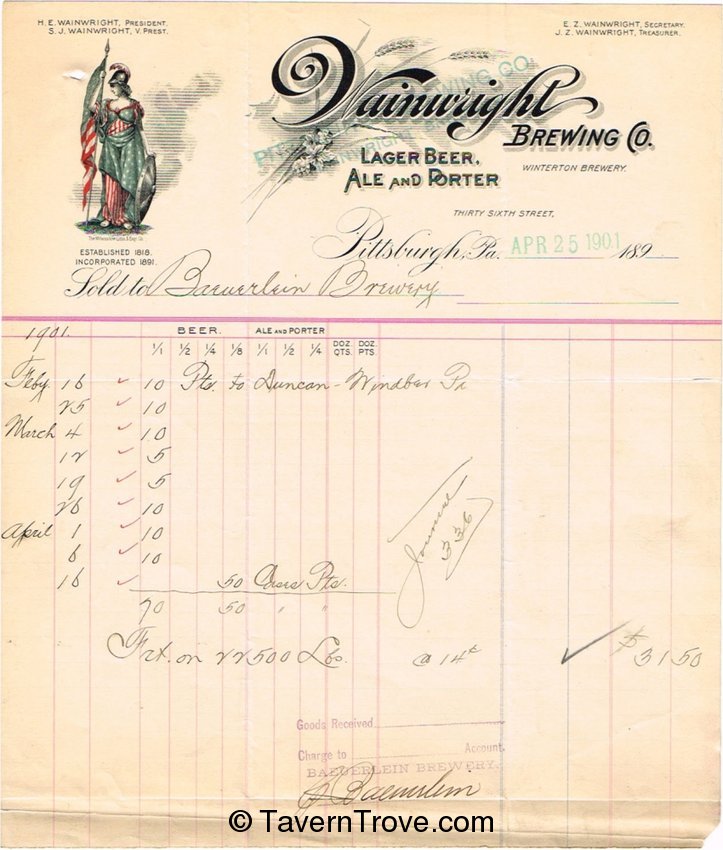 H. E. WAINWRIGHT, PRESIDENT.
S. J. WAINWRIGHT, V. PREST.
E. Z. WAINWRIGHT, SECRETARY.
J. Z. WAINWRIGHT, TREASURER.
Wainwright
BREWING CO.
LAGER BEER,
ALE AND PORTER
WINTERTON BREWERY.
THIRTY SIXTH STREET,
Pittsburgh, Pa. APR 25 1901 189
ESTABLISHED 1818.
INCORPORATED 1891.
Sold to Baeuerlein Brewery
1901. BEER. ALE AND PORTER
1/1 1/2 1/4 1/8 1/1 1/2 1/4 DOZ. QTS. DOZ. PTS.
Feby 16 ✓ 10 Pts. to Duncan - Windber Pa
25 ✓ 10
March 4 ✓ 10
12 ✓ 5
19 ✓ 5
26 ✓ 10
April 1 ✓ 10
6 ✓ 10
16 ✓ 50 Pts.
70 50 " "
Journal
336
Frt. on 22500 Lbs. @ 14¢ ✓ $31 50
Goods Received
Charge to Account.
BAEUERLEIN BREWERY.
Baeuerlein
© TavernTrove.com